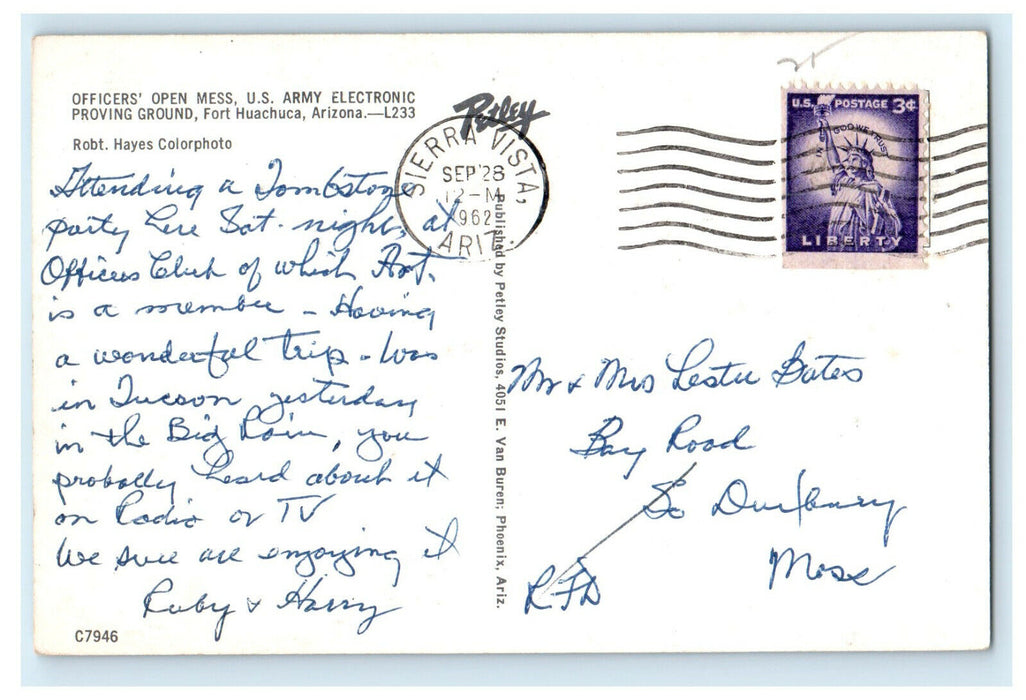 OFFICERS' OPEN MESS, U.S. ARMY ELECTRONIC
PROVING GROUND, Fort Huachuca, Arizona.—L233
Robt. Hayes Colorphoto
Attending a Tombstone
party here Sat. night, at
Officers Club of which Art.
is a member - Having
a wonderful trip. Was
in Tucson yesterday
in the Big Rain, you
probally heard about it
on Radio or TV
We sure are enjoying it
Ruby & Harry
C7946
Petley
SIERRA VISTA,
SEP 28
12-M
1962
ARIZ.
Published by Petley Studios, 4051 E. Van Buren; Phoenix, Ariz.
U.S. POSTAGE 3¢
IN GOD WE TRUST
LIBERTY
Mr & Mrs Lester Bates
Bay Road
So Duxbury
Mass
RFD